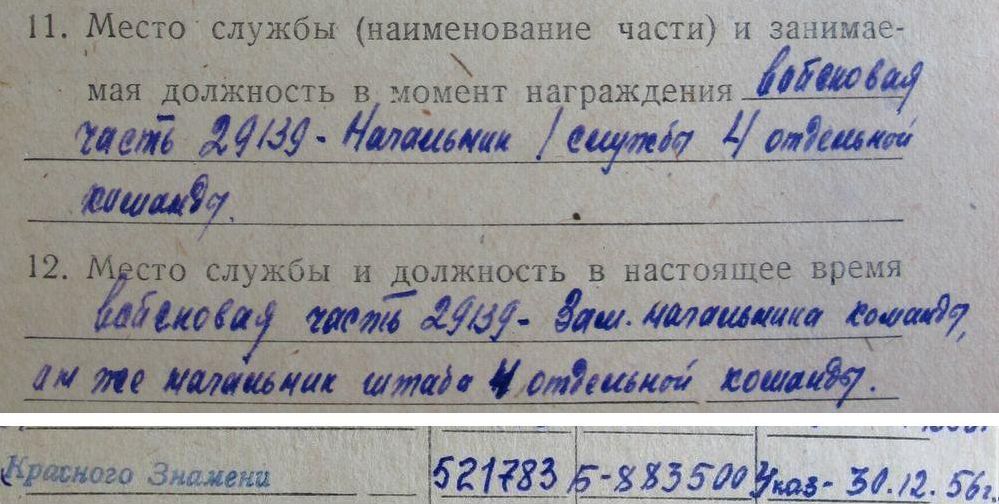 11. Место службы (наименование части) и занимае-
мая должность в момент награждения войсковая
часть 29139 - Начальник / службы 4 отдельной
команды.
12. Место службы и должность в настоящее время
войсковая часть 29139 - Зам. начальника команды,
он же начальник штаба 4 отдельной команды.
Красного Знамени 521783 Б-883500 Указ - 30.12.56г.